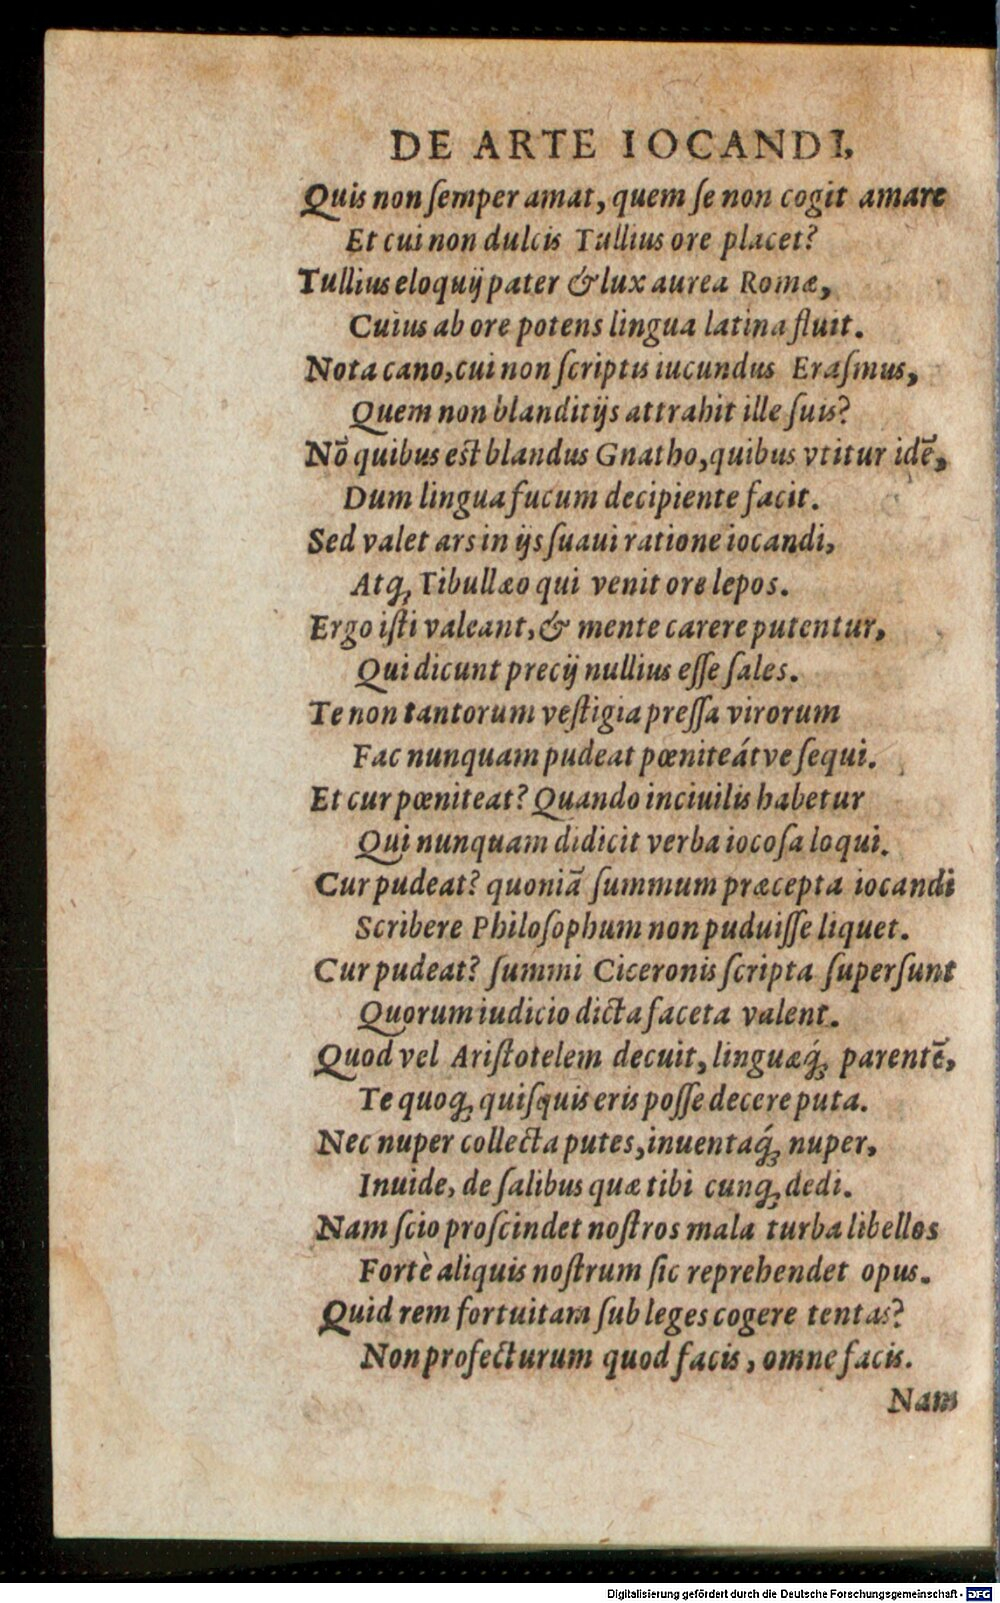 DE ARTE IOCANDI,
Quis non ſemper amat, quem ſe non cogit amare
Et cui non dulcis Tullius ore placet?
Tullius eloquij pater & lux aurea Romæ,
Cuius ab ore potens lingua latina fluit.
Nota cano, cui non ſcriptis iucundus Eraſmus,
Quem non blanditijs attrahit ille ſuis?
Nõ quibus est blandus Gnatho, quibus vtitur idē,
Dum lingua fucum decipiente facit.
Sed valet ars in ijs ſuaui ratione iocandi,
Atq; Tibullæo qui venit ore lepos.
Ergo iſti valeant, & mente carere putentur,
Qui dicunt precij nullius eſſe ſales.
Te non tantorum veſtigia preſſa virorum
Fac nunquam pudeat pœniteátve ſequi.
Et cur pœniteat? Quando inciuilis habetur
Qui nunquam didicit verba iocoſa loqui.
Cur pudeat? quoniã ſummum præcepta iocandi
Scribere Philoſophum non puduiſſe liquet.
Cur pudeat? ſummi Ciceronis ſcripta ſuperſunt
Quorum iudicio dicta faceta valent.
Quod vel Ariſtotelem decuit, linguæq́; parentē,
Te quoq; quiſquis eris poſſe decere puta.
Nec nuper collecta putes, inuentaq́; nuper,
Inuide, de ſalibus quæ tibi cunq; dedi.
Nam ſcio proſcindet noſtros mala turba libellos
Fortè aliquis noſtrum ſic reprehendet opus.
Quid rem fortuitam ſub leges cogere tentas?
Non profecturum quod facis, omne facis.
Nam
Digitalisierung gefördert durch die Deutsche Forschungsgemeinschaft - DFG